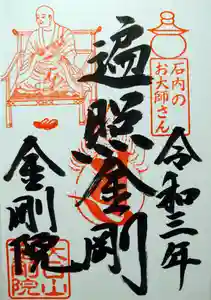 石内の
お大師さん
令和三年
遍照金剛
金剛院